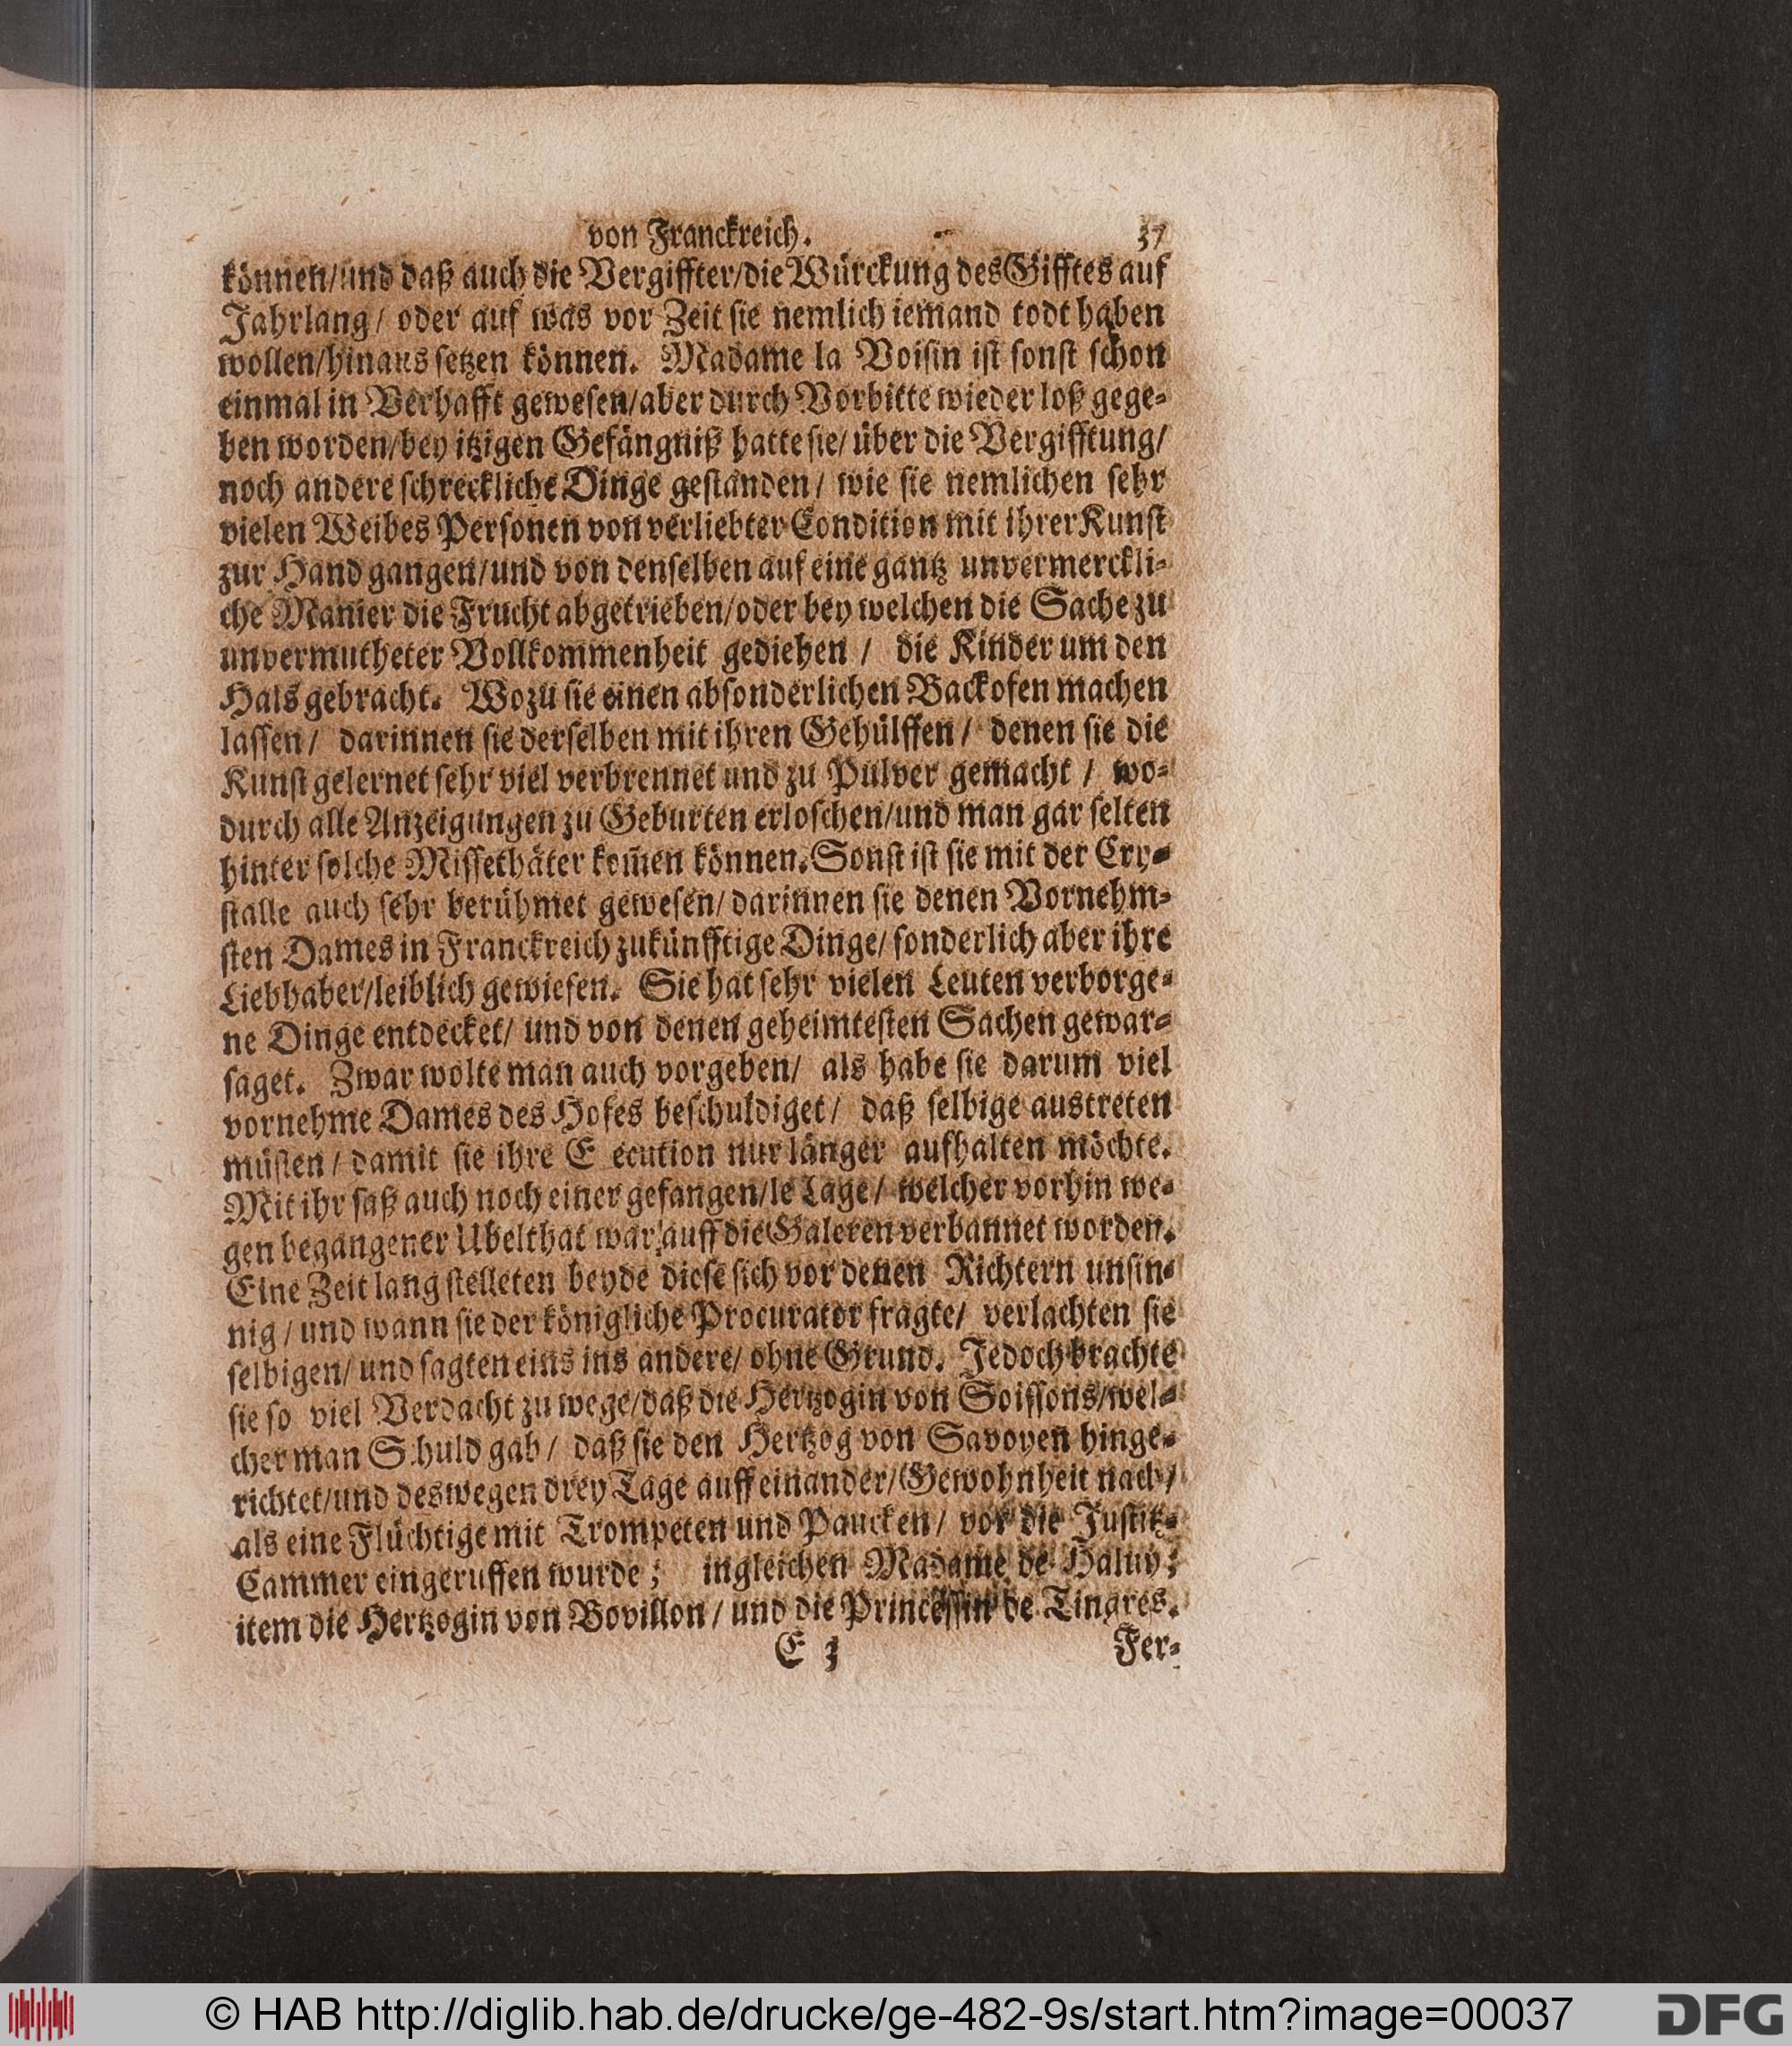 von Franckreich. 37
können/und daß auch die Vergiffter/die Würckung des Gifftes auf
Jahrlang/ oder auf was vor Zeit sie nemlich iemand todt haben
wollen/hinaus setzen können. Madame la Voisin ist sonst schon
einmal in Verhafft gewesen/aber durch Vorbitte wieder loß gege-
ben worden/bey itzigen Gefängniß hatte sie/ über die Vergifftung/
noch andere schreckliche Dinge gestanden/ wie sie nemlichen sehr
vielen Weibes Personen von verliebter Condition mit ihrer Kunst
zur Hand gangen/und von denselben auf eine gantz unvermerckli-
che Manier die Frucht abgetrieben/oder bey welchen die Sache zu
unvermutheter Vollkommenheit gediehen / die Kinder um den
Hals gebracht. Wozu sie einen absonderlichen Backofen machen
lassen/ darinnen sie derselben mit ihren Gehülffen/ denen sie die
Kunst gelernet sehr viel verbrennet und zu Pulver gemacht / wo-
durch alle Anzeigungen zu Geburten erloschen/und man gar selten
hinter solche Missethäter kom̃en können. Sonst ist sie mit der Cry-
stalle auch sehr berühmet gewesen/ darinnen sie denen Vornehm-
sten Dames in Franckreich zukünfftige Dinge/ sonderlich aber ihre
Liebhaber/leiblich gewiesen. Sie hat sehr vielen Leuten verborge-
ne Dinge entdecket/ und von denen geheimtesten Sachen gewar-
saget. Zwar wolte man auch vorgeben/ als habe sie darum viel
vornehme Dames des Hofes beschuldiget/ daß selbige austreten
müsten / damit sie ihre E ecution nur länger aufhalten möchte.
Mit ihr saß auch noch einer gefangen/le Lage/ welcher vorhin we-
gen begangener Ubelthat war auff die Galeren verbannet worden.
Eine Zeit lang stelleten beyde diese sich vor denen Richtern unsin-
nig / und wann sie der königliche Procurator fragte/ verlachten sie
selbigen/ und sagten eins ins andere/ ohne Grund. Jedoch brachte
sie so viel Verdacht zu wege/daß die Hertzogin von Soissons/wel-
cher man S huld gab/ daß sie den Hertzog von Savoyen hinge-
richtet/und deswegen drey Tage auff einander/Gewohnheit nach/
als eine Flüchtige mit Trompeten und Paucken/ vor die Justitz-
Cammer eingeruffen wurde; ingleichen Madame de Haluy;
item die Hertzogin von Bovillon/ und die Princessin de Tingres.
E 3 Fer-
© HAB http://diglib.hab.de/drucke/ge-482-9s/start.htm?image=00037
DFG